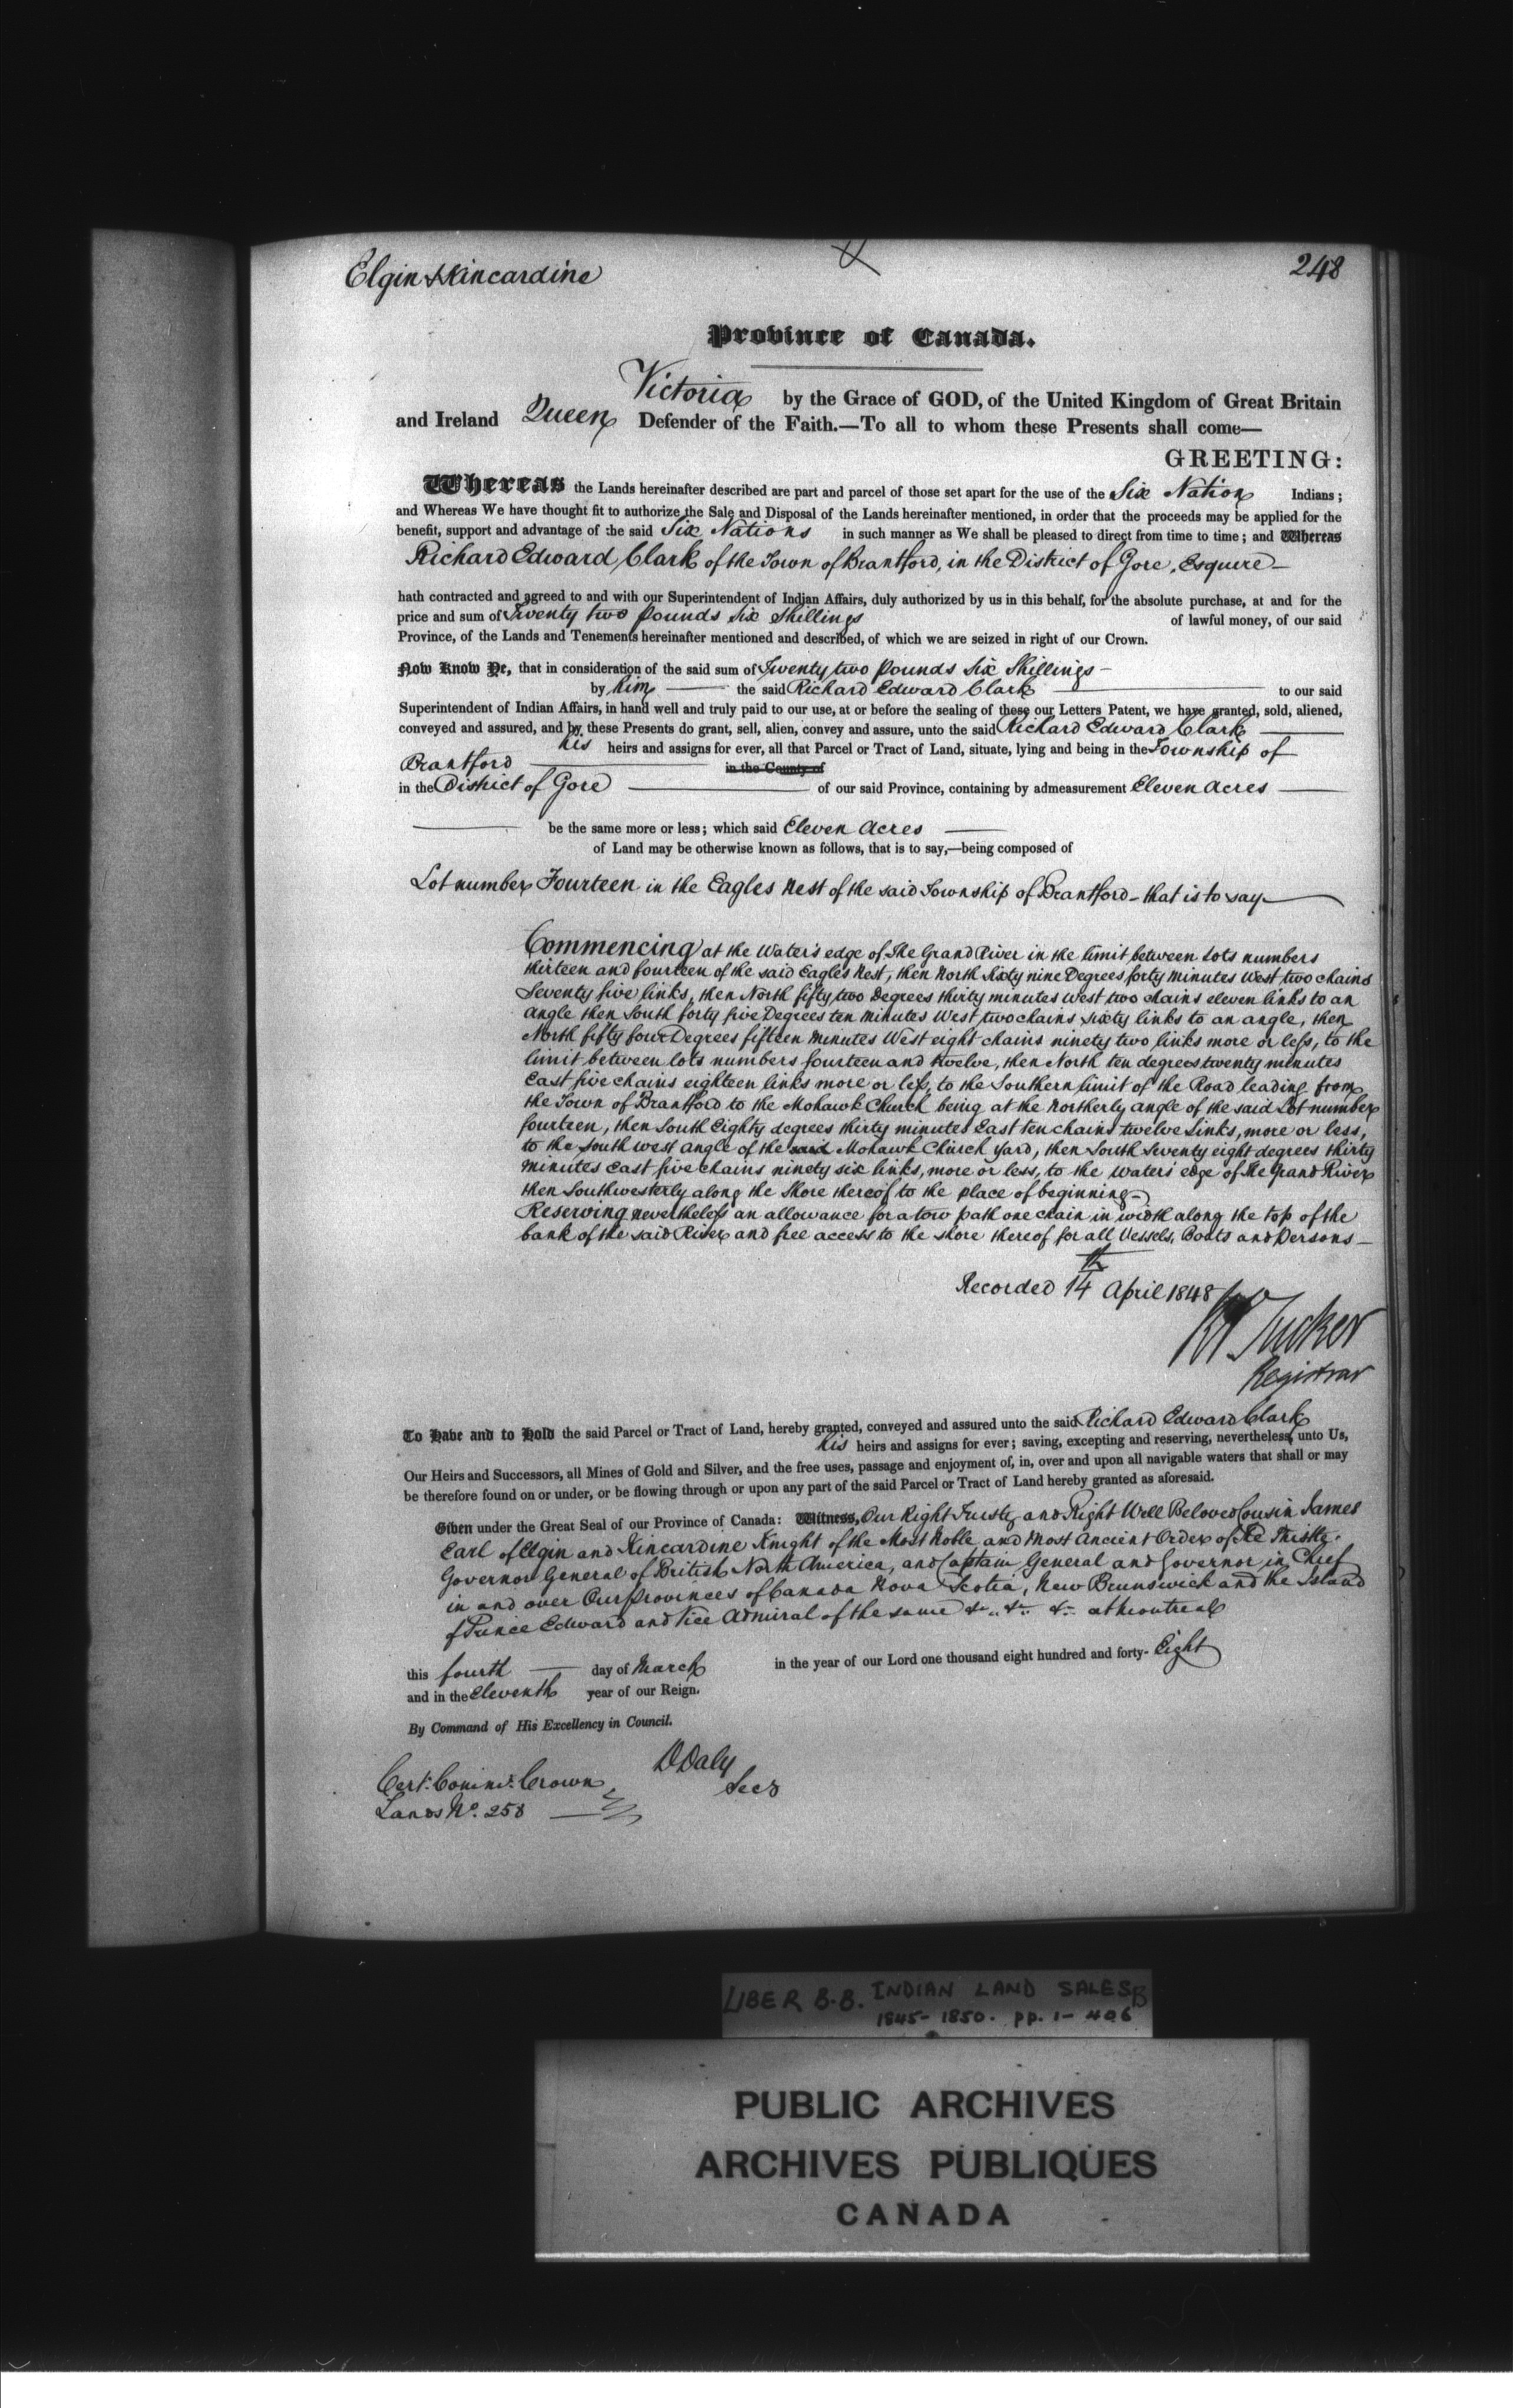 Elgin & Kincardine
248
Province of Canada.
Victoria by the Grace of GOD, of the United Kingdom of Great Britain
and Ireland Queen Defender of the Faith.—To all to whom these Presents shall come—
GREETING:
Whereas the Lands hereinafter described are part and parcel of those set apart for the use of the Six Nation Indians;
and Whereas We have thought fit to authorize the Sale and Disposal of the Lands hereinafter mentioned, in order that the proceeds may be applied for the
benefit, support and advantage of the said Six Nations in such manner as We shall be pleased to direct from time to time; and Whereas
Richard Edward Clark of the Town of Brantford, in the District of Gore, Esquire—
hath contracted and agreed to and with our Superintendent of Indian Affairs, duly authorized by us in this behalf, for the absolute purchase, at and for the
price and sum of Twenty two Pounds Six Shillings of lawful money, of our said
Province, of the Lands and Tenements hereinafter mentioned and described, of which we are seized in right of our Crown.
Now Know Ye, that in consideration of the said sum of Twenty two Pounds Six Shillings—
by him — the said Richard Edward Clark — to our said
Superintendent of Indian Affairs, in hand well and truly paid to our use, at or before the sealing of these our Letters Patent, we have granted, sold, aliened,
conveyed and assured, and by these Presents do grant, sell, alien, convey and assure, unto the said Richard Edward Clark —
his heirs and assigns for ever, all that Parcel or Tract of Land, situate, lying and being in the Township of
Brantford — in the County of
in the District of Gore — of our said Province, containing by admeasurement Eleven Acres —
— be the same more or less; which said Eleven Acres —
of Land may be otherwise known as follows, that is to say,—being composed of
Lot number Fourteen in the Eagles Nest of the said Township of Brantford – that is to say —
Commencing at the Water's edge of The Grand River in the limit between Lots numbers
thirteen and fourteen of the said Eagles Nest, then North Sixty nine Degrees forty minutes West two chains
Seventy five links, then North fifty two Degrees thirty minutes West two chains eleven links to an
angle then South forty five Degrees ten minutes West two chains sixty links to an angle, then
North fifty four Degrees fifteen minutes West eight chains ninety two links more or less, to the
limit between lots numbers fourteen and twelve, then North ten degrees twenty minutes
East five chains eighteen links more or less, to the Southern limit of the Road leading from
the Town of Brantford to the Mohawk Church being at the Northerly angle of the said Lot number
fourteen, then South Eighty degrees thirty minutes East ten chains twelve Links, more or less,
to the South West angle of the said Mohawk Church yard, then South Seventy eight degrees thirty
minutes East five chains ninety six links, more or less, to the waters edge of The Grand River
then Southwesterly along the Shore thereof to the place of beginning—
Reserving nevertheless an allowance for a tow path one chain in width along the top of the
bank of the said River and free access to the shore thereof for all Vessels, Boats and Persons—
Recorded 14th April 1848
Tucker
Registrar
To Have and to Hold the said Parcel or Tract of Land, hereby granted, conveyed and assured unto the said Richard Edward Clark
his heirs and assigns for ever; saving, excepting and reserving, nevertheless, unto Us,
Our Heirs and Successors, all Mines of Gold and Silver, and the free uses, passage and enjoyment of, in, over and upon all navigable waters that shall or may
be therefore found on or under, or be flowing through or upon any part of the said Parcel or Tract of Land hereby granted as aforesaid.
Given under the Great Seal of our Province of Canada: Witness, Our Right Trusty and Right Well Beloved Cousin James
Earl of Elgin and Kincardine Knight of the Most Noble and Most Ancient Order of The Thistle.
Governor General of British North America, and Captain General and Governor in Chief
in and over Our Provinces of Canada Nova Scotia, New Brunswick and the Island
of Prince Edward and Vice Admiral of the same &c. &c. &c. at Montreal
this fourth — day of March in the year of our Lord one thousand eight hundred and forty-Eight
and in the Eleventh year of our Reign.
By Command of His Excellency in Council.
D Daly
Secy
Cert: Commr: Crown
Lands No. 258
LIBER B.B. INDIAN LAND SALES B
1845-1850. pp. 1-406
PUBLIC ARCHIVES
ARCHIVES PUBLIQUES
CANADA